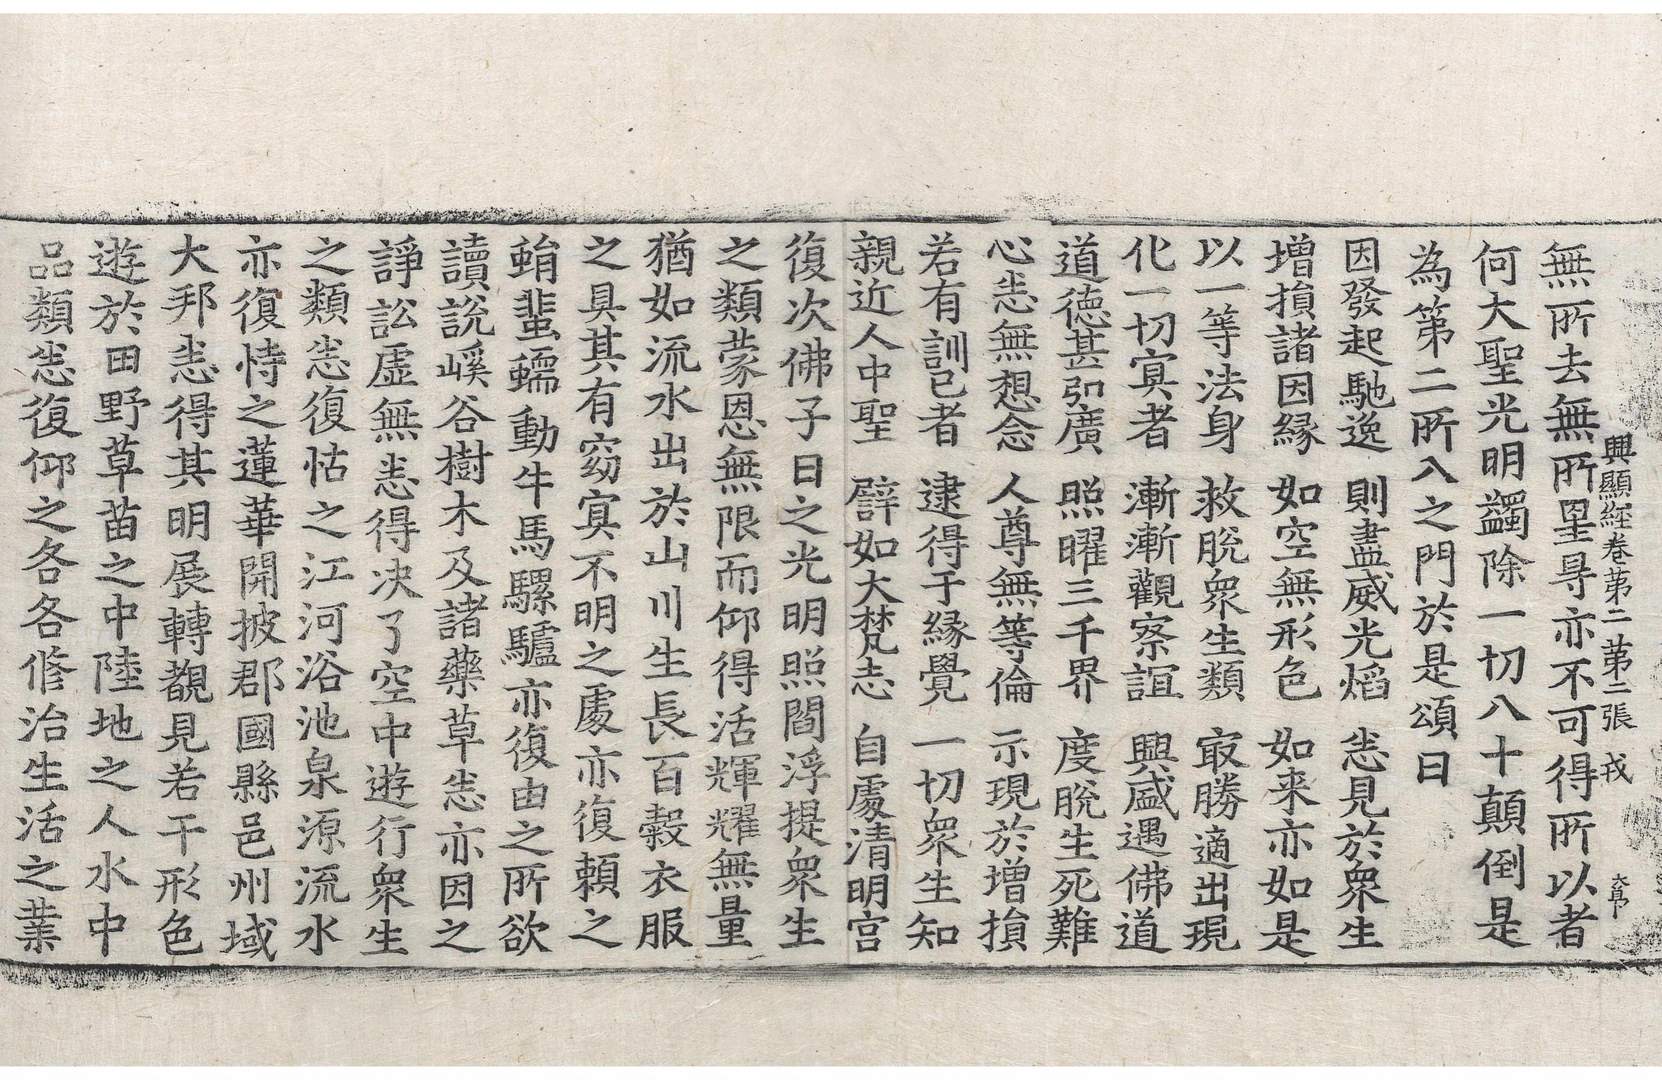 興顯經卷第二 第二張 戎
無所去無所罣㝵亦不可得所以者
何大聖光明蠲除一切八十顛倒是
為第二所入之門於是頌曰
因發起馳逸 則盡威光焰 悉見於衆生
增損諸因緣 如空無形色 如来亦如是
以一等法身 救脫衆生類 㝡勝適出現
化一切冥者 漸漸觀察誼 興盛遇佛道
道德甚弘廣 照曜三千界 度脫生死難
心悉無想念 人尊無等倫 示現於增損
若有訓已者 逮得于緣覺 一切衆生知
親近人中聖 譬如大梵志 自處清明宮
復次佛子日之光明照閻浮提衆生
之類蒙恩無限而仰得活輝耀無量
猶如流水出於山川生長百穀衣服
之具其有窈冥不明之處亦復賴之
蜎蜚蠕動牛馬騾驢亦復由之所欲
讀說嵠谷樹木及諸藥草悉亦因之
諍訟虛無悉得决了空中遊行衆生
之類悉復怙之江河浴池泉源流水
亦復恃之蓮華開披郡國縣邑州域
大邦悉得其明展轉覩見若干形色
遊於田野草苗之中陸地之人水中
品類悉復仰之各各修治生活之業